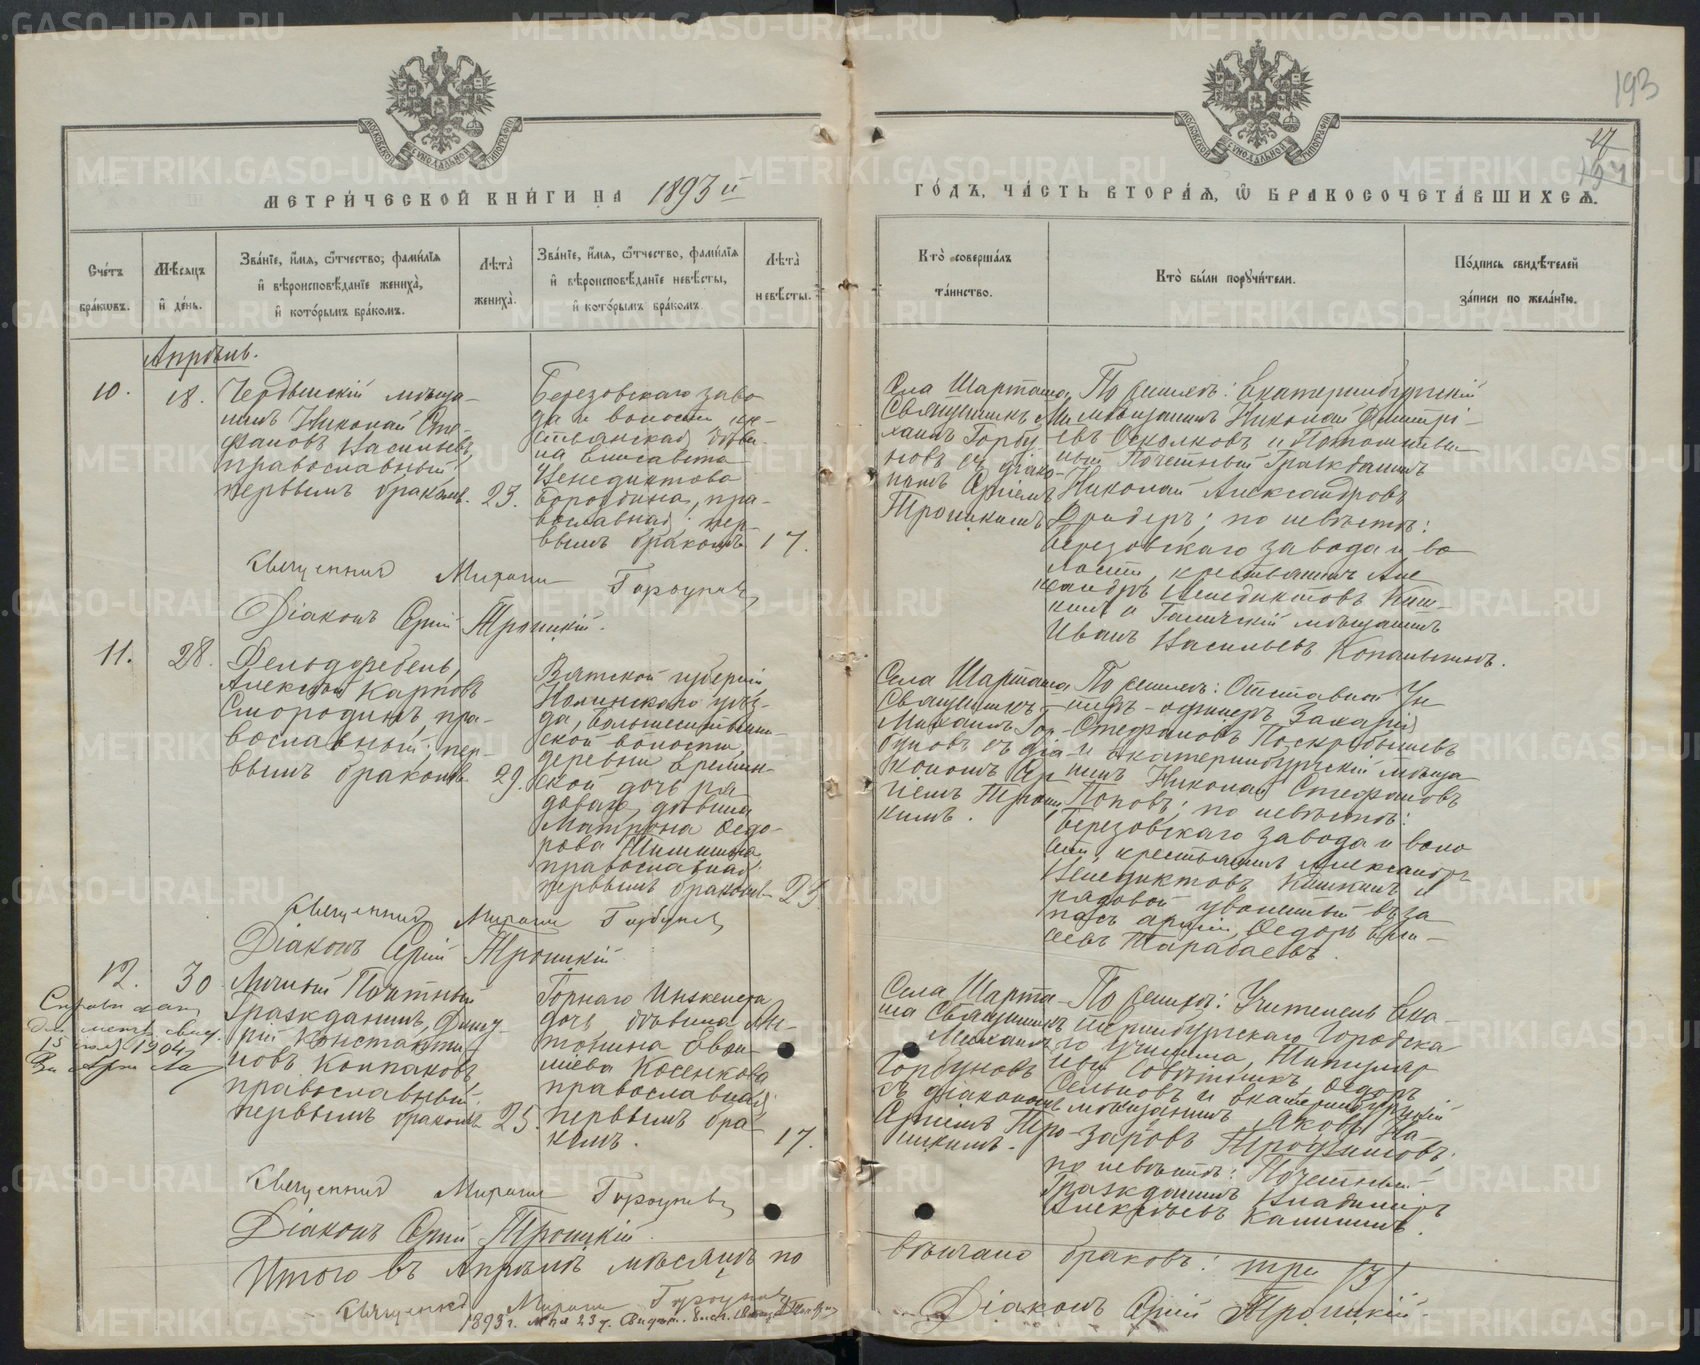 МЕТРИ́ЧЕСКОЙ КНИ́ГИ НА 1893й
ГО́ДЪ, ЧА́СТЬ ВТОРА́Я, Ѡ БРАКОСОЧЕТА́ВШИХСЯ.
193
Сче́тъ бра́ковъ.
Мѣ́сяцъ и де́нь.
Зва́нїе, и́мя, о́тчество, фами́лїя и вѣроисповѣ́данїе жениха̀, и кото́рымъ бра́комъ.
Лѣта̀ жениха̀.
Зва́нїе, и́мя, о́тчество, фами́лїя и вѣроисповѣ́данїе невѣ́сты, и кото́рымъ бра́комъ.
Лѣта̀ невѣ́сты.
Кто̀ соверша́лъ та́инство.
Кто̀ бы́ли поручи́тели.
По́дпись свидѣ́телей за́писи по жела́нїю.
Апрѣль.
10.
18.
Чердынскій мѣща-
нинъ Николай Сте-
фановъ Васильевъ,
православный,
первымъ бракомъ.
23.
Березовскаго заво
да и волости кре-
стьянская дѣви-
ца Елисавета
Венедиктова
Бородина, пра-
вославная; пер-
вымъ бракомъ
17.
Села Шарташа
Священникъ Ми
хаилъ Горбу
новъ съ діако-
номъ Арсіемъ
Троицкимъ
По женихѣ: Екатеринбургскій
мѣщанинъ Николай Димитрі-
евъ Осколковъ и Потомствен
ный Почетный Гражданинъ
Николай Александровъ
по невѣстѣ:
Березовскаго завода и во
лости, крестьянинъ Але
ксандръ Венедиктовъ Киш-
кинъ и Галичскій мѣщанинъ
Иванъ Васильевъ Копальскихъ.
Священникъ Михаилъ Горбуновъ
Діаконъ Арсій Троицкій.
11.
28.
Фельдфебель,
Алексѣй Карповъ
Смородинъ, пра-
вославный; пер-
вымъ бракомъ
29.
Вятской губерніи
Нолинскаго уѣз-
да,
ской волости,
деревни
кой дочь ря
доваго, дѣвица
Матрона Ѳедо-
рова
православная;
первымъ бракомъ
23
Села Шарташа
Священникъ
Михаилъ Гор-
буновъ съ діа
кономъ Ар
сіемъ Троиц
кимъ.
По женихѣ: Отставной Ун
теръ-офицеръ Захарій
Стефановъ Поскребышевъ
и Екатеринбургскій мѣща
нинъ Николай Стефановъ
Поповъ; по невѣстѣ:
Березовскаго завода и воло
сти, крестьянинъ Александръ
Венедиктовъ Кишкинъ и
рядовой уволенный въ за
пасъ арміи, Ѳедоръ
Тарабаевъ.
Священникъ Михаилъ Горбуновъ
Діаконъ Арсій Троицкій
12.
30
15 1904
Личный Почетный
Гражданинъ, Дими-
трій Константи-
новъ Колпаковъ,
православный,
первымъ бракомъ
25.
Горнаго Инженера
дочь, дѣвица Ан-
тонина Евфи-
міева Косенкова
православная;
первымъ бра-
комъ.
17.
Села Шарта-
ша Священникъ
Михаилъ
Горбуновъ
съ діакономъ
Арсіемъ Тро-
ицкимъ.
По женихѣ: Учитель Ека-
теринбургскаго Городска-
го училища, Титуляр
ный Совѣтникъ, Ѳедоръ
Сельновъ и Екатеринбургскій
мѣщанинъ, Яковъ На-
заровъ Трофимовъ;
по невѣстѣ: Почетный
Гражданинъ Владиміръ
Алексѣевъ Калининъ.
Священникъ Михаилъ Горбуновъ
Діаконъ Арсій Троицкій
Итого въ Апрѣлѣ мѣсяцѣ по
вѣнчано браковъ: три /3/
Священникъ Михаилъ Горбуновъ
Діаконъ Арсій Троицкій
1893 г. Мая 23 д.
METRIKI.GASO-URAL.RU